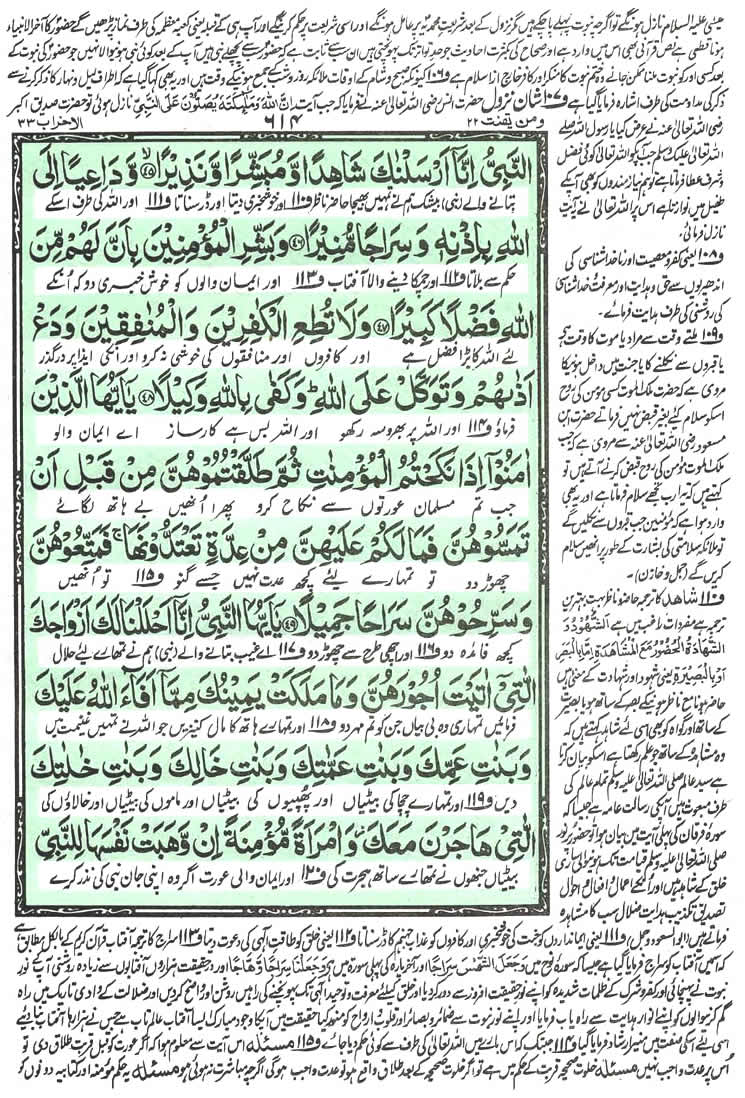 عیسٰی علیہ السلام نازل ہونگے تو اگرچہ نبوت پہلے پاچکے ہیں مگر نزول کے بعد شریعت محمدیہ پر عامل ہونگے اور اسی شریعت پر حکم کرینگے اور آپ ہی کے قبلہ یعنی کعبہ معظمہ کی طرف نماز پڑھیں گے حضور کا آخر الانبیاء
ہونا قطعی ہے نص قرآنی بھی اس میں وارد ہے اور صحاح کی بکثرت احادیث جو حد تواتر تک پہونچتی ہیں ان سب سے ثابت ہے کہ حضور سب سے پچھلے نبی ہیں آپ کے بعد کوئی نبی ہونیوالا نہیں جو حضور کی نبوت کے
بعد کسی اور کو نبوت ملنا ممکن جانے وہ ختم نبوت کا منکر اور کافر خارج از اسلام ہے ف۱۰۶ کیونکہ صبح و شام کے اوقات ملائکہ روز و شب کے جمع ہونے کے وقت ہیں اور یہ بھی کہا گیا ہے کہ اطراف لیل و نہار کا ذکر کرنے سے
ذکر کی مداومت کی طرف اشارہ فرمایا گیا ہے ف۱۰۷ شان نزول حضرت انس رضی اللہ تعالٰی عنہ نے فرمایا کہ جب آیت اِنَّ اللّٰهَ وَمَلٰٓئِكَتَهٗ يُصَلُّوْنَ عَلَى النَّبِيِّ نازل ہوئی تو حضرت صدیق اکبر
ومن يقنت ۲۲ ۶۱۴ الاحزاب ۳۳
النَّبِيُّ اِنَّاۤ اَرْسَلْنٰكَ شَاهِدًا وَّ مُبَشِّرًا وَّ نَذِيْرًا ۙ﴿۴۵﴾ وَّ دَاعِيًا اِلَى
بتانے والے (نبی) بیشک ہم نے تمہیں بھیجا حاضر ناظر ف۱۱۰ اور خوشخبری دیتا اور ڈر سناتا ف۱۱۱ اور اللہ کی طرف اسکے
اللّٰهِ بِاِذْنِهٖ وَ سِرَاجًا مُّنِيْرًا ﴿۴۶﴾ وَ بَشِّرِ الْمُؤْمِنِيْنَ بِاَنَّ لَهُمْ مِّنَ
حکم سے بلاتا ف۱۱۲ اور چمکا دینے والا آفتاب ف۱۱۳ اور ایمان والوں کو خوش خبری دو کہ انکے
اللّٰهِ فَضْلًا كَبِيْرًا ﴿۴۷﴾ وَ لَا تُطِعِ الْكٰفِرِيْنَ وَ الْمُنٰفِقِيْنَ وَ دَعْ
لئے اللہ کا بڑا فضل ہے اور کافروں اور منافقوں کی خوشی نہ کرو اور انکی ایذا پر درگزر
اَذٰىهُمْ وَ تَوَكَّلْ عَلَى اللّٰهِ ؕ وَ كَفٰى بِاللّٰهِ وَكِيْلًا ﴿۴۸﴾ يٰۤاَيُّهَا الَّذِيْنَ
فرماؤ ف۱۱۴ اور اللہ پر بھروسہ رکھو اور اللہ بس ہے کارساز اے ایمان والو
اٰمَنُوْۤا اِذَا نَكَحْتُمُ الْمُؤْمِنٰتِ ثُمَّ طَلَّقْتُمُوْهُنَّ مِنْ قَبْلِ اَنْ
جب تم مسلمان عورتوں سے نکاح کرو پھر انھیں بے ہاتھ لگائے
تَمَسُّوْهُنَّ فَمَا لَكُمْ عَلَيْهِنَّ مِنْ عِدَّةٍ تَعْتَدُّوْنَهَا ۚ فَمَتِّعُوْهُنَّ
چھوڑ دو تو تمہارے لئے کچھ عدت نہیں جسے گنو ف۱۱۵ تو انھیں
وَ سَرِّحُوْهُنَّ سَرَاحًا جَمِيْلًا ﴿۴۹﴾ يٰۤاَيُّهَا النَّبِيُّ اِنَّاۤ اَحْلَلْنَا لَكَ اَزْوَاجَكَ
کچھ فائدہ دو ف۱۱۶ اور اچھی طرح سے چھوڑ دو ف۱۱۷ اے غیب بتانے والے (نبی) ہم نے تمہارے لئے حلال
الّٰتِيْۤ اٰتَيْتَ اُجُوْرَهُنَّ وَ مَا مَلَكَتْ يَمِيْنُكَ مِمَّاۤ اَفَآءَ اللّٰهُ عَلَيْكَ
فرمائیں تمہاری وہ بی بیاں جن کو تم مہر دو ف۱۱۸ اور تمہارے ہاتھ کا مال کنیزیں جو اللہ نے تمہیں غنیمت میں
وَ بَنٰتِ عَمِّكَ وَ بَنٰتِ عَمّٰتِكَ وَ بَنٰتِ خَالِكَ وَ بَنٰتِ خٰلٰتِكَ
دیں ف۱۱۹ اور تمہارے چچا کی بیٹیاں اور پھپیوں کی بیٹیاں اور ماموں کی بیٹیاں اور خالاؤں کی
الّٰتِيْ هَاجَرْنَ مَعَكَ ؗ وَ امْرَاَةً مُّؤْمِنَةً اِنْ وَّهَبَتْ نَفْسَهَا لِلنَّبِيِّ
بیٹیاں جنھوں نے تمہارے ساتھ ہجرت کی ف۱۲۰ اور ایمان والی عورت اگر وہ اپنی جان نبی کی نذر کرے
رضی اللہ تعالٰی عنہ نے عرض کیا یا رسول اللہ صلے
اللہ تعالٰی علیک وسلم جب آپکو اللہ تعالٰی کوئی فضل
و شرف عطا فرماتا ہے تو ہم نیازمندوں کو بھی آپکے
طفیل میں نوازتا ہے اس پر اللہ تعالٰی نے یہ آیت
نازل فرمائی۔
ف۱۰۸ یعنی کفر و معصیت اور ناخدا شناسی کی
اندھیریوں سے حق و ہدایت اور معرفت خدا شناسی
کی روشنی کی طرف ہدایت فرمائے۔
ف۱۰۹ ملتے وقت سے مراد یا موت کا وقت ہے
یا قبروں سے نکلنے کا یا جنت میں داخل ہونیکا
مروی ہے کہ حضرت ملک الموت کسی مومن کی روح
اسکو سلام کئے بغیر قبض نہیں فرماتے حضرت ابن
مسعود رضی اللہ تعالٰی عنہ سے مروی ہے کہ جب
ملک الموت مومن کی روح قبض کرنے آتے ہیں تو
کہتے ہیں کہ تیرا رب تجھے سلام فرماتا ہے اور یہ بھی
وارد ہوا ہے کہ مومنین جب قبروں سے نکلیں گے
تو ملائکہ سلامتی کی بشارت کے طور پر انھیں سلام
کریں گے (جمل و خازن)
ف۱۱۰ شاهد کا ترجمہ حاضر و ناظر بہت بہترین
ترجمہ ہے مفردات راغب میں ہے اَلشُّهُوْدُ وَ
الشَّهَادَةُ الْحُضُوْرُ مَعَ الْمُشَاهَدَةِ اِمَّا بِالْبَصَرِ
اَوْ بِالْبَصِيْرَةِ یعنی شہود اور شہادت کے معنی ہیں
حاضر ہونا مع ناظر ہونے کے بصر کے ساتھ ہو یا بصیرت
کے ساتھ اور گواہ کو بھی اسی لئے شاہد کہتے ہیں کہ
وہ مشاہدہ کے ساتھ جو علم رکھتا ہے اسکو بیان کرتا
ہے سید عالم صلی اللہ تعالٰی علیہ وسلم تمام عالم کی
طرف مبعوث ہیں آپکی رسالت عامہ ہے جیسا کہ
سورہ فرقان کی پہلی آیت میں بیان ہوا تو حضور پرنور
صلی اللہ تعالٰی علیہ وسلم قیامت تک ہونیوالی ساری
خلق کے شاہد ہیں اور انکے اعمال و افعال و احوال
تصدیق تکذیب ہدایت ضلال سب کا مشاہدہ
فرماتے ہیں (ابو السعود و جمل) ف۱۱۱ یعنی ایمانداروں کو جنت کی خوشخبری اور کافروں کو عذاب جہنم کا ڈر سناتا ف۱۱۲ یعنی خلق کو طاعت الٰہی کی دعوت دیتا ف۱۱۳ سراج کا ترجمہ آفتاب قرآن کریم کے بالکل مطابق ہے
کہ اس میں آفتاب کو سراج فرمایا گیا ہے جیسا کہ سورہ نوح میں وَجَعَلَ الشَّمْسَ سِرَاجًا اور آخر پارہ کی پہلی سورہ میں ہے وَجَعَلْنَا سِرَاجًا وَّهَّاجًا اور درحقیقت ہزاروں آفتابوں سے زیادہ روشنی آپ کے نور
نبوت نے پہنچائی اور کفر و شرک کے ظلمات شدیدہ کو اپنے نور حقیقت افروز سے دور کر دیا اور خلق کیلئے معرفت و توحید الٰہی تک پہونچنے کی راہیں روشن اور واضح کر دیں اور ضلالت کے وادی تاریک میں راہ
گم کرنیوالوں کو اپنے نور ہدایت سے راہ یاب فرمایا اور اپنے نور نبوت سے ضمائر و بصائر اور قلوب و ارواح کو منور کیا حقیقت میں آپکا وجود مبارک ایسا آفتاب عالمتاب ہے جس نے ہزارہا آفتاب بنا دیئے
اسی لئے اسکی صفت میں منیر ارشاد فرمایا گیا ف۱۱۴ جب تک کہ اس بارے میں اللہ تعالٰی کی طرف سے کوئی حکم دیا جائے ف۱۱۵ مسئلہ اس آیت سے معلوم ہوا کہ اگر عورت کو قبل قربت طلاق دی تو
اس پر عدت واجب نہیں مسئلہ خلوت صحیحہ قربت کے حکم میں ہے تو اگر خلوت صحیحہ کے بعد طلاق واقع ہو تو عدت واجب ہوگی اگرچہ مباشرت نہ ہوئی ہو مسئلہ یہ حکم مومنہ اور کتابیہ دونوں کو